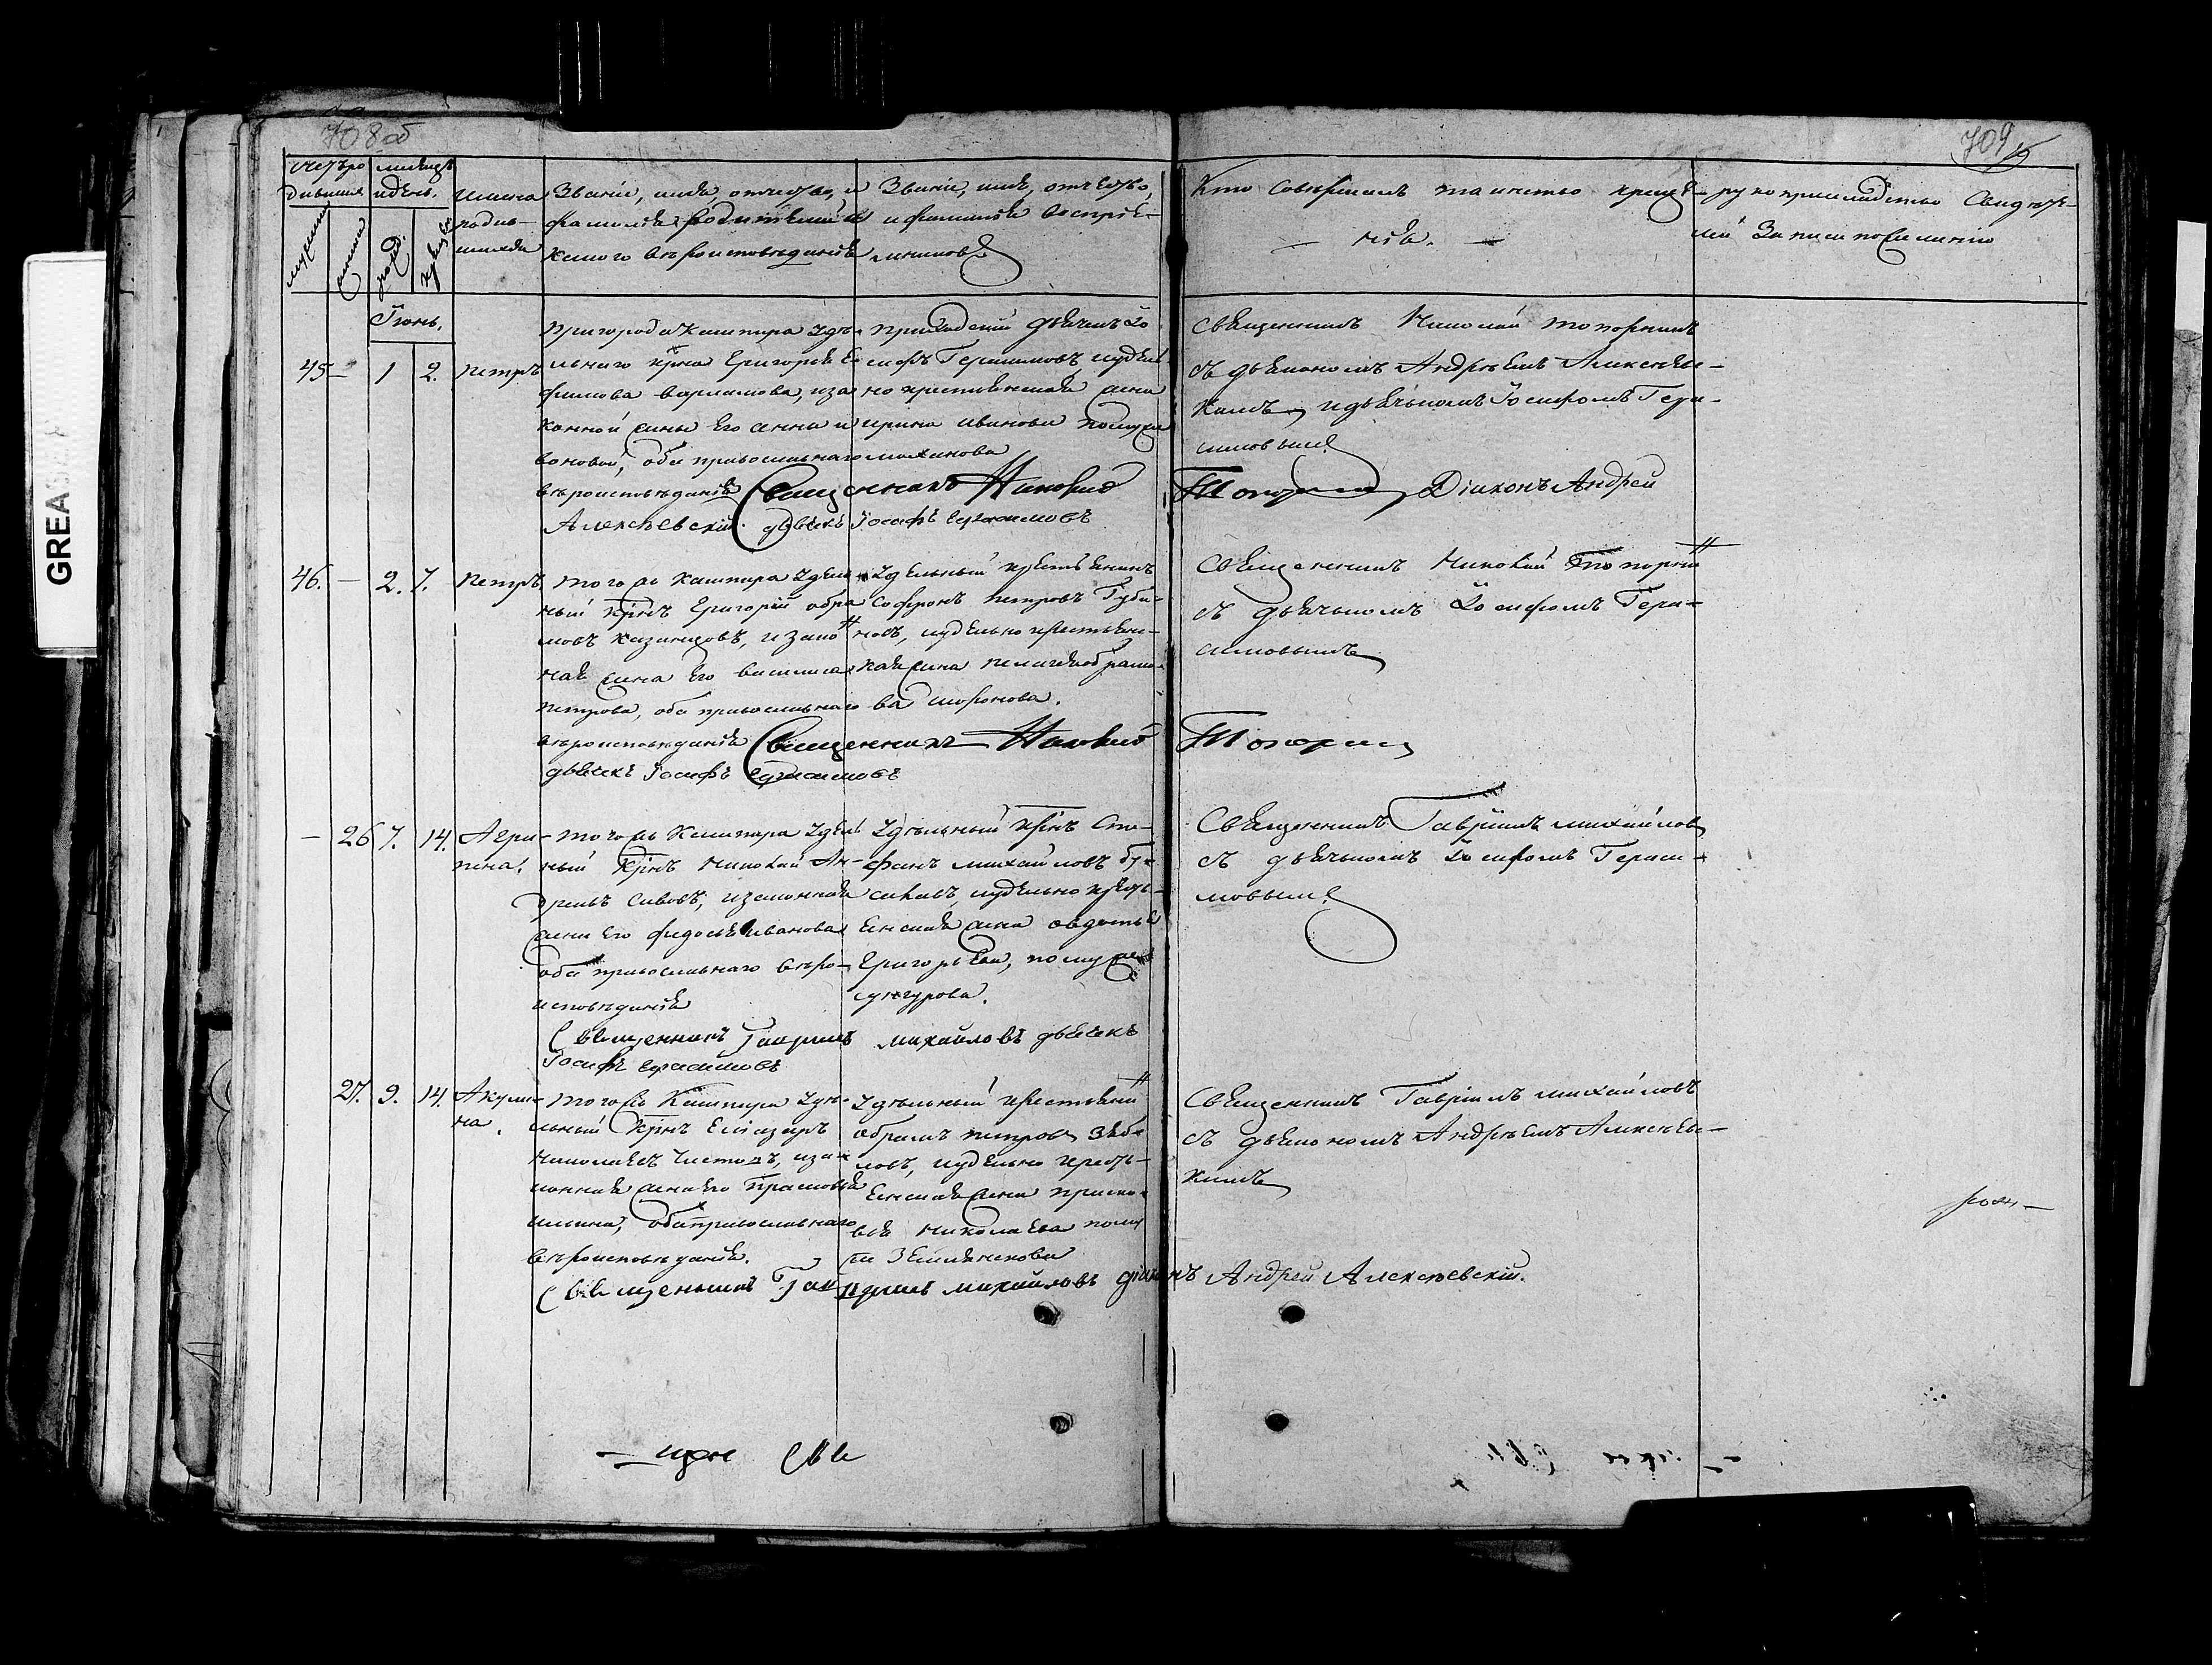 708 об
709
Счетъ ро
дившихся
мѣсяцъ
и день.
имена
родив
шихся
Званіе, имя, отчество, и
фамилія родителей и
какого вѣроисповѣданія
Званіе, имя, отчество,
и фамилія воспріе-
мниковъ
Кто совершалъ таинство креще-
нія.
рукоприкладство свидѣте-
лей записи по желанію
Іюнь.
45 — 1 2. Петръ
Пригорода Кашпира удѣ-
льнаго крна Григорія Е
фимова Варламова, иза
конной жены его Анна и
вановой, оба православнаго
вѣроисповѣданія
приходскій дьячекъ Іо
сифъ Герасимовъ, и удѣл
но крестьянская жена
Ирина Иванова по мужу
Священникъ Николай Топорнинъ
съ дьякономъ Андреемъ Алексѣев-
кимъ, и дьячькомъ Іосифомъ Гера-
симовымъ
Священникъ Николай Топорнин Діаконъ Андрей
Алексѣевскій. дьячекъ Іосифъ Герасимовъ
46. — 2. 7. Петръ
того жъ Кашпира удѣл
ный крнъ Григорій Абра
мовъ Казанцовъ, и зако
ная жена его Василиса
Петрова, оба православнаго
вѣроисповѣданія
Удѣльный крестьянинъ
Софронъ Петровъ Губа-
новъ, и удѣльно крестьян-
ская жена Пелагея Абрамо-
ва Сафонова.
Священникъ Николай Топорни
съ дьячькомъ Іосифомъ Гера-
симовымъ
Священникъ Николай Топорнин
дьячекъ Іосифъ Герасимовъ
— 26 7. 14. Агри-
пина.
того жъ Кашпира удѣл
ный крнъ Николай Ан-
дреевъ Сивовъ, и законная
жена его Федосья Иванова
оба православнаго вѣро-
исповѣданія
Удѣльный крнъ Сте-
фанъ Михайловъ
и удѣльно кресть-
янская жена Авдотья
Григорьева, по мужу
Сунгурова.
Священникъ Гавріилъ Михайловъ
съ дьячькомъ Іосифомъ Гераси-
мовымъ
Священникъ Гавріилъ Михайловъ дьячекъ
Іосифъ Герасимовъ
27. 9. 14. Акули-
на.
того жъ Кашпира удѣ-
льный крнъ Елизаръ
Николаевъ Чистовъ, иза-
конная жена его Прасковья
Ильина, оба православнаго
вѣроисповѣданія.
Удѣльный крестьяни
Абрамъ Петровъ Зяб-
ловъ, и удѣльно кресть-
янская жена Праско-
вья Николаева по му
жу Землянскова
Священникъ Гавріилъ Михайловъ
съ дьякономъ Андреемъ Алексѣев-
кимъ
Священникъ Гавріилъ Михайловъ діаконъ Андрей Алексѣевскій.